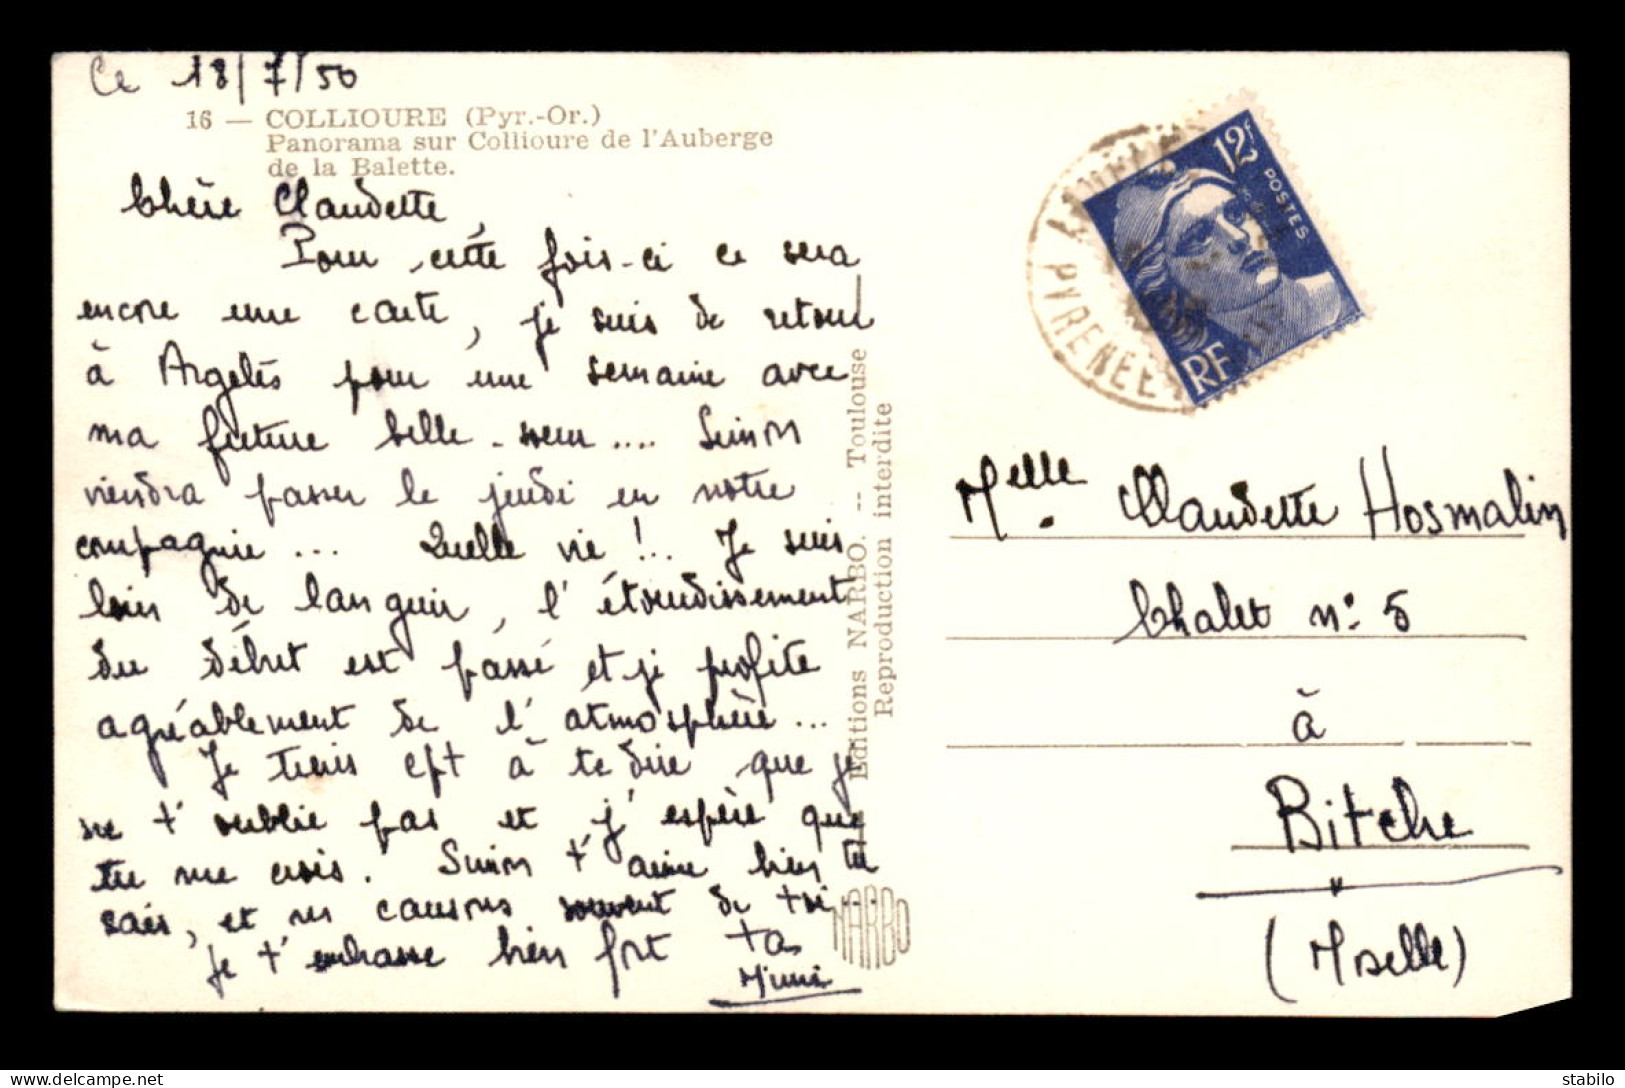 Ce 18/7/50
16 — COLLIOURE (Pyr.-Or.)
Panorama sur Collioure de l'Auberge
de la Balette.
Chère Claudette,
Pour cette fois-ci ce sera
encore une carte, je suis de retour
à Argelès pour une semaine avec
ma future belle-soeur.... Simon
viendra passer le jeudi en notre
compagnie... Quelle vie !... Je suis
loin de languir, l'étourdissement
du début est passé et je profite
agréablement de l'atmosphère...
Je tiens cpt à te dire que je
ne t'oublie pas et j'espère que
tu me crois. Simon t'aime bien tu
sais, et ns causons souvent de toi...
Je t'embrasse bien fort ta
Mimi
Editions NARBO. -- Toulouse
Reproduction interdite
NARBO
12f
POSTES
RF
PYRENEE
Melle. Claudette Hosmalin
Chalet n: 5
à
Bitche
(Moselle)
stampsdelcampe